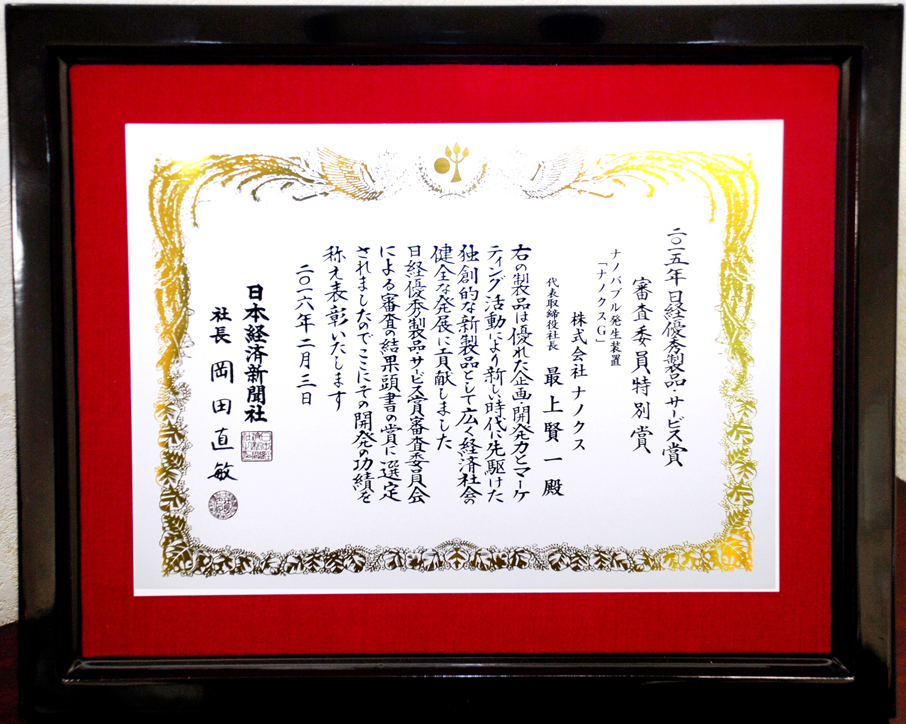 二〇一五年日経優秀製品・サービス賞
審査委員特別賞
ナノバブル発生装置
「ナノクスG」
株式会社 ナノクス
代表取締役社長 最上賢一 殿
右の製品は優れた企画・開発力とマーケ
ティング活動により新しい時代に先駆けた
独創的な新製品として広く経済社会の
健全な発展に貢献しました
日経優秀製品・サービス賞審査委員会
による審査の結果頭書の賞に選定
されましたのでここにその開発の功績を
称え表彰いたします
二〇一六年二月三日
日本経済新聞社
社長 岡田直敏